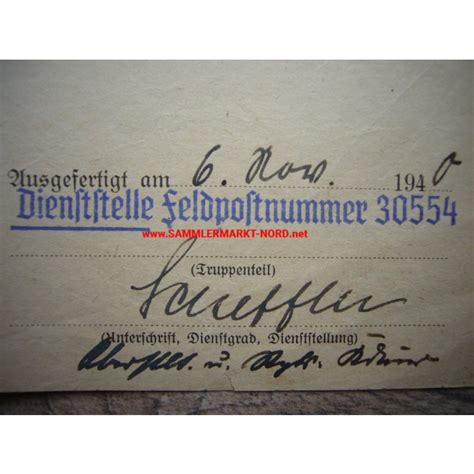 Ausgefertigt am 6. Nov. 1940
Dienststelle Feldpostnummer 30554
www.SAMMLERMARKT-NORD.net
(Truppenteil)
Scheffler
(Unterschrift, Dienstgrad, Dienststellung)
Oberstlt. u.